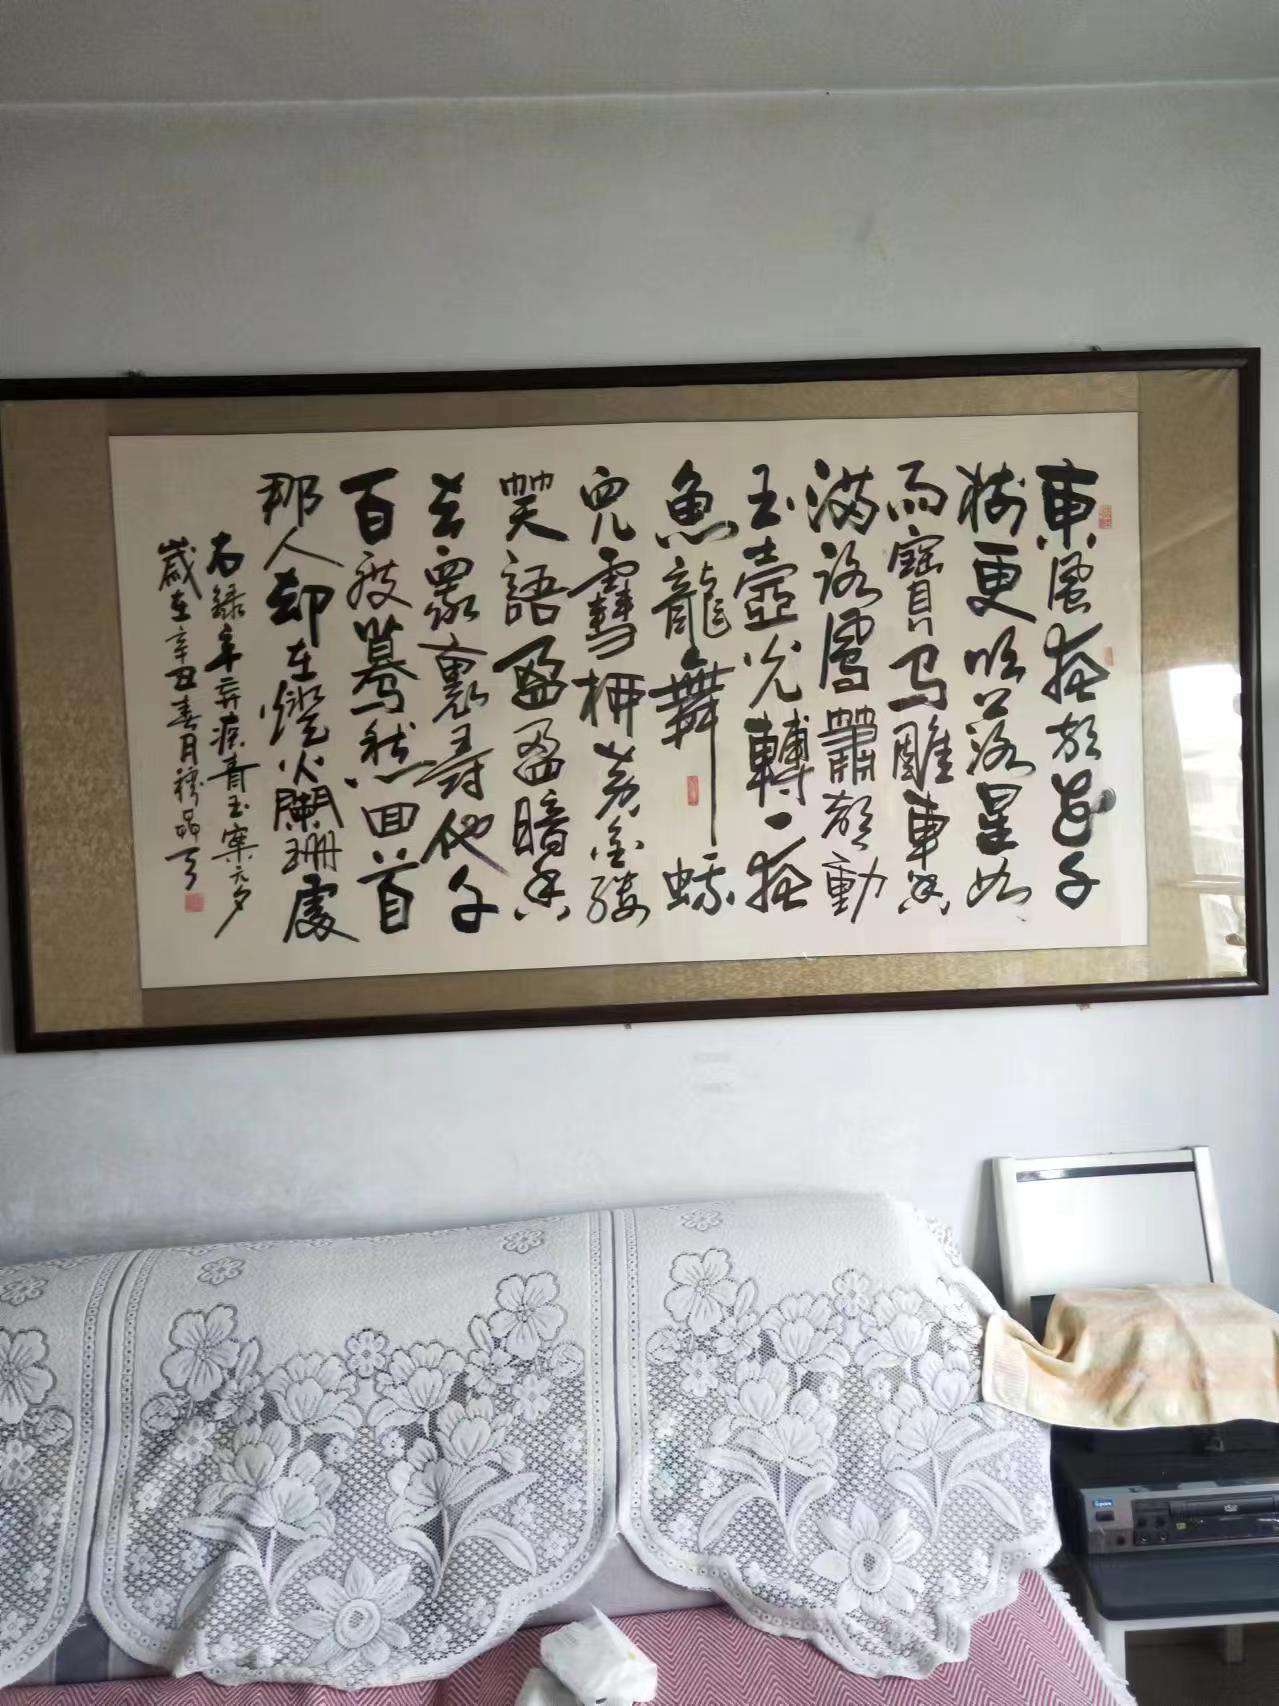 東風夜放花千
樹更吹落星如
雨寶馬雕車香
滿路鳳簫聲動
玉壺光轉一夜
魚龍舞蛾
兒雪柳黃金縷
笑語盈盈暗香
去眾裏尋他千
百度驀然回首
那人却在燈火闌珊處
右錄辛弃疾青玉案元夕
歲在辛丑春月